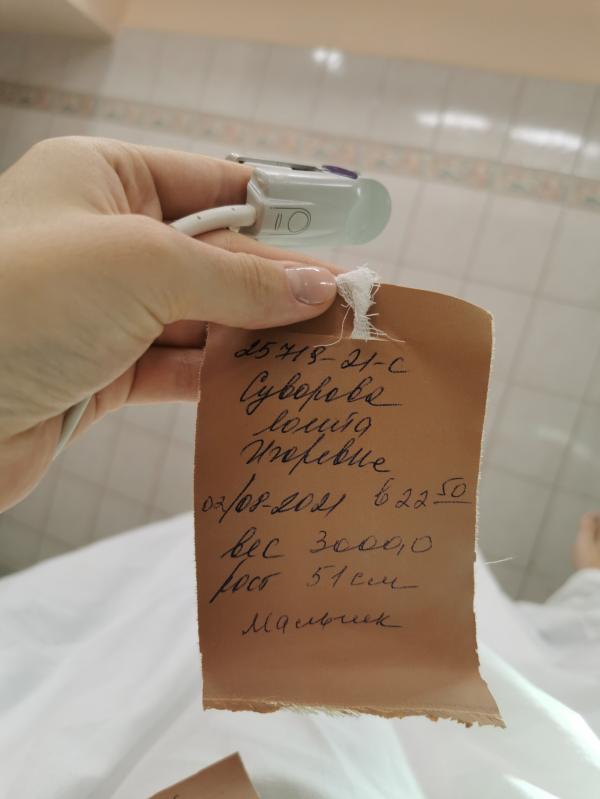 25718-21-с
Суворова
Лолита
Игоревне
02/08-2021 в 22 50
вес 3000,0
рост 51 см
Мальчик